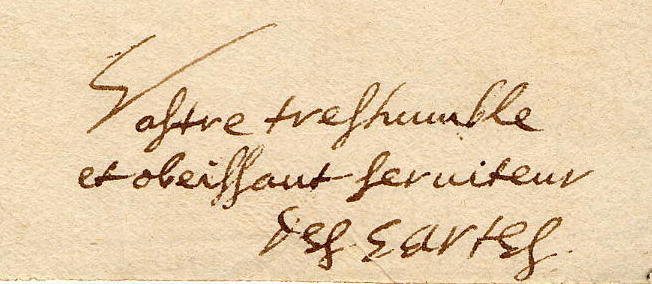 Vostre treshumble
et obeissant seruiteur
Descartes